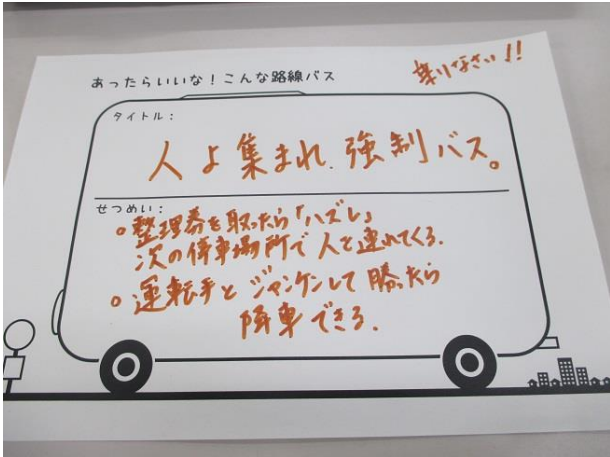 あったらいいな!こんな路線バス
乗りなさい!!
タイトル:
人よ集まれ、強制バス。
せつめい:
。整理券を取ったら「ハズレ」
次の停車場所で人を連れてくる.
。運転手とジャンケンして勝ったら
降車できる.